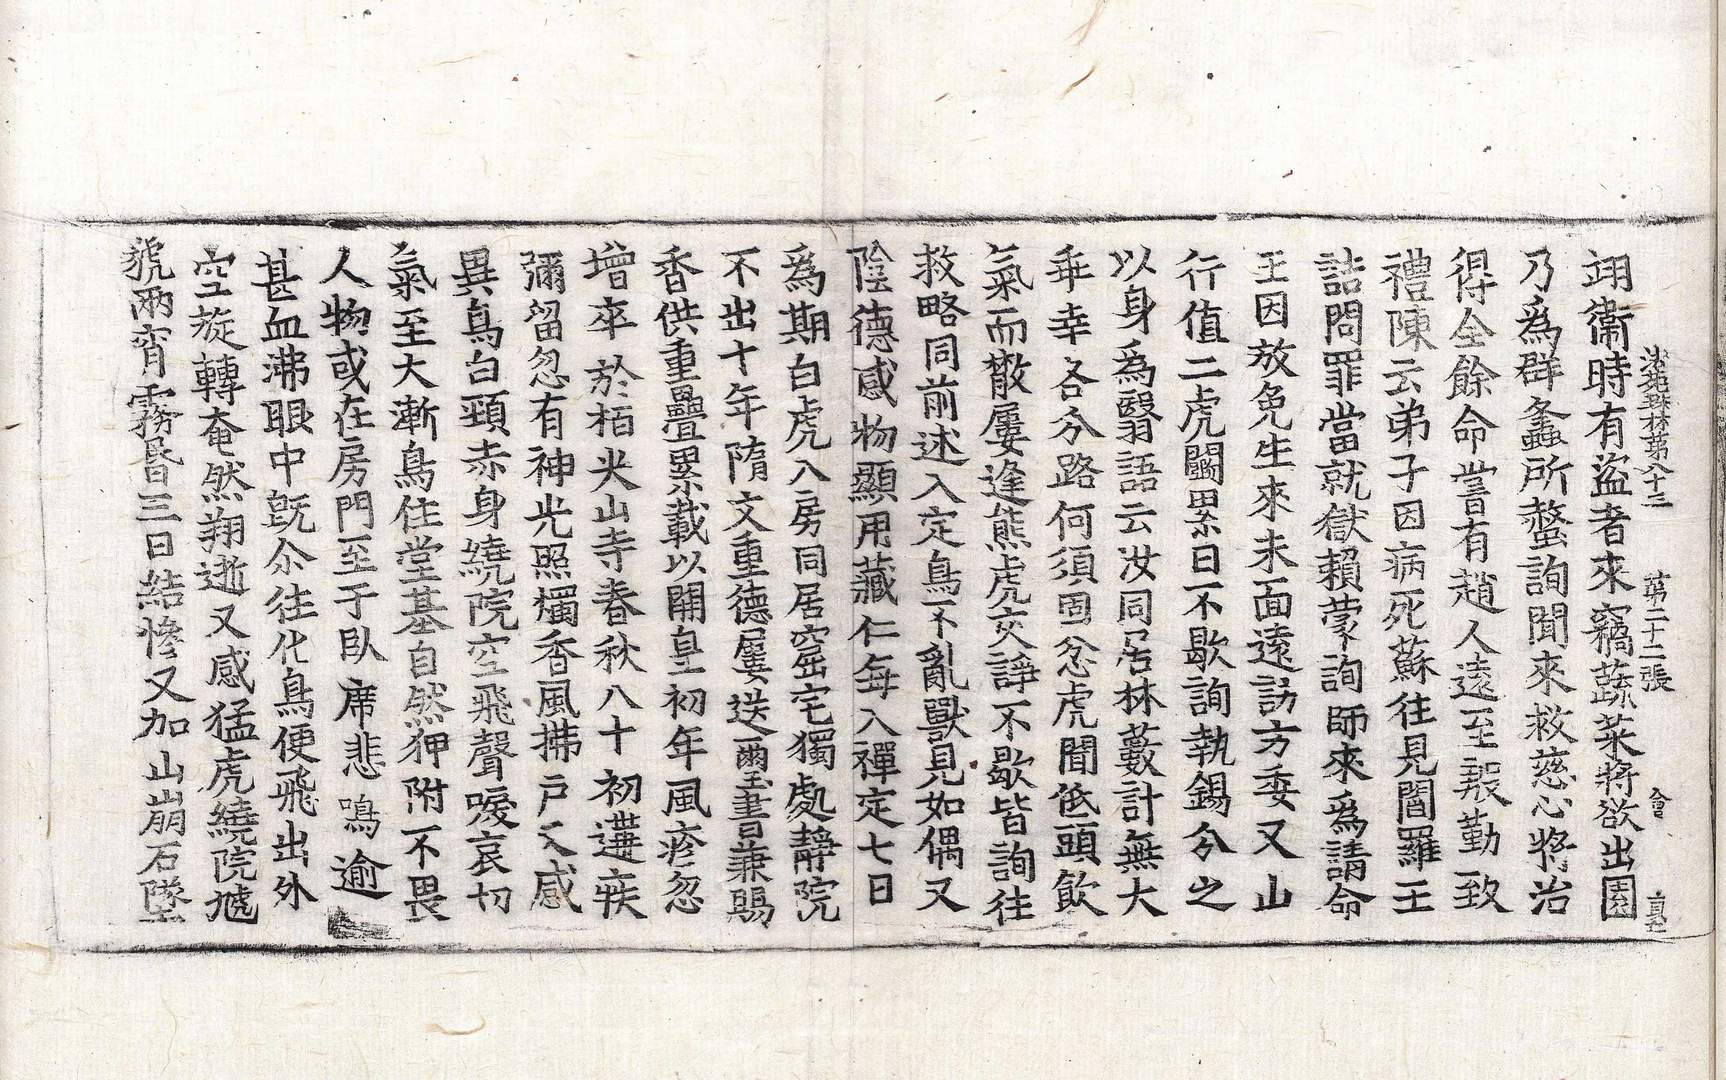 法苑珠林第八十三 第二十二張 會 真
翊衛時有盜者來竊蔬菜將欲出園
乃爲群螽所螫詢聞來救慈心將治
得全餘命嘗有趙人遠至袈勤致
禮陳云弟子因病死蘇往見閻羅王
詰問罪當就獄賴蒙詢師來爲請命
王因放免生來未面遠訪方委又山
行值二虎鬪累日不歇詢執錫分之
以身爲翳語云汝同居林藪計無大
乖幸各分路何須固忿虎聞低頭飲
氣而散屢逢熊虎交諍不歇皆詢往
救略同前述入定鳥不亂獸見如偶又
陰德感物顯用藏仁每入禪定七日
爲期白虎入房同居窟宅獨處靜院
不出十年隋文重德屢送璽書兼賜
香供重疊累載以開皇初年風疹忽
增卒於栢尖山寺春秋八十初遘疾
彌留忽有神光照燭香風拂戶又感
異鳥白頸赤身繞院空飛聲噯哀切
氣至大漸鳥住堂基自然狎附不畏
人物或在房門至于臥席悲鳴逾
甚血沸眼中旣尒往化鳥便飛出外
空旋轉奄然翔逝又感猛虎繞院號
號兩宵霧昏三日結慘又加山崩石墜